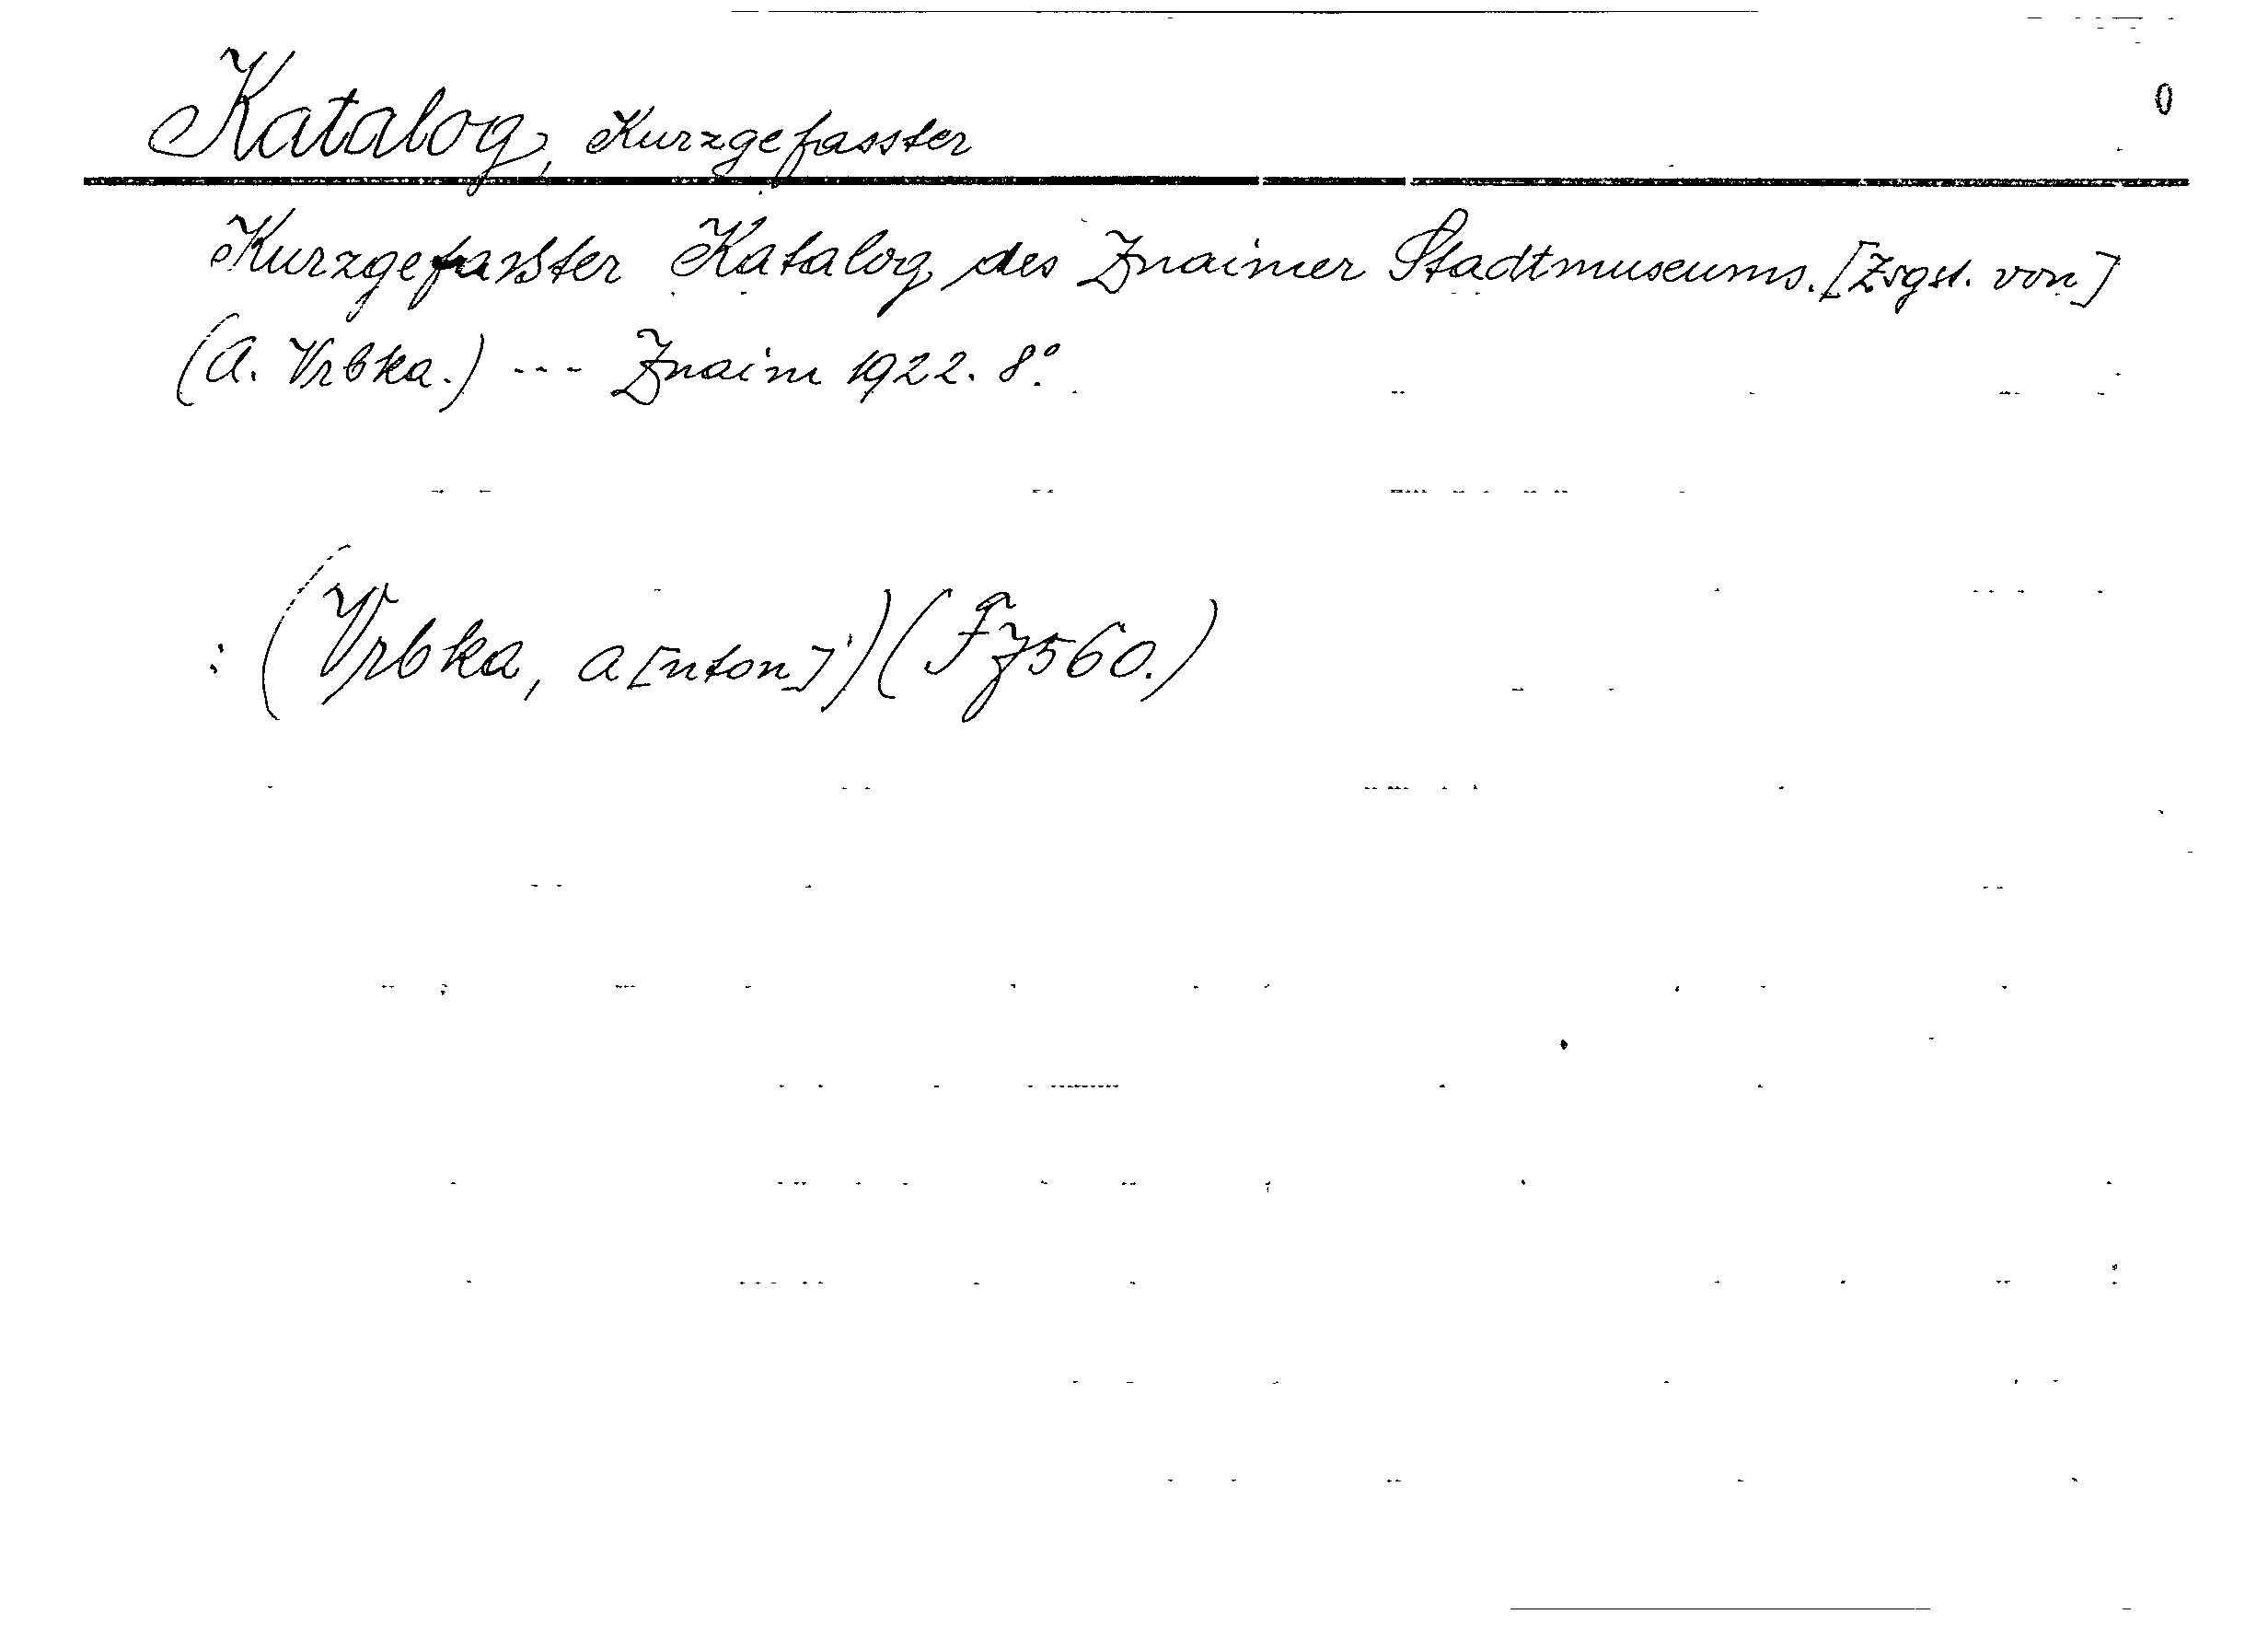 Katalog, Kurzgefasster
0
Kurzgefaßter Katalog des Znaimer Stadtmuseums. [Zsgst. von]
(A. Vrbka.) --- Znaim 1922. 8°.
: (Vrbka, A[nton])(F7560.)